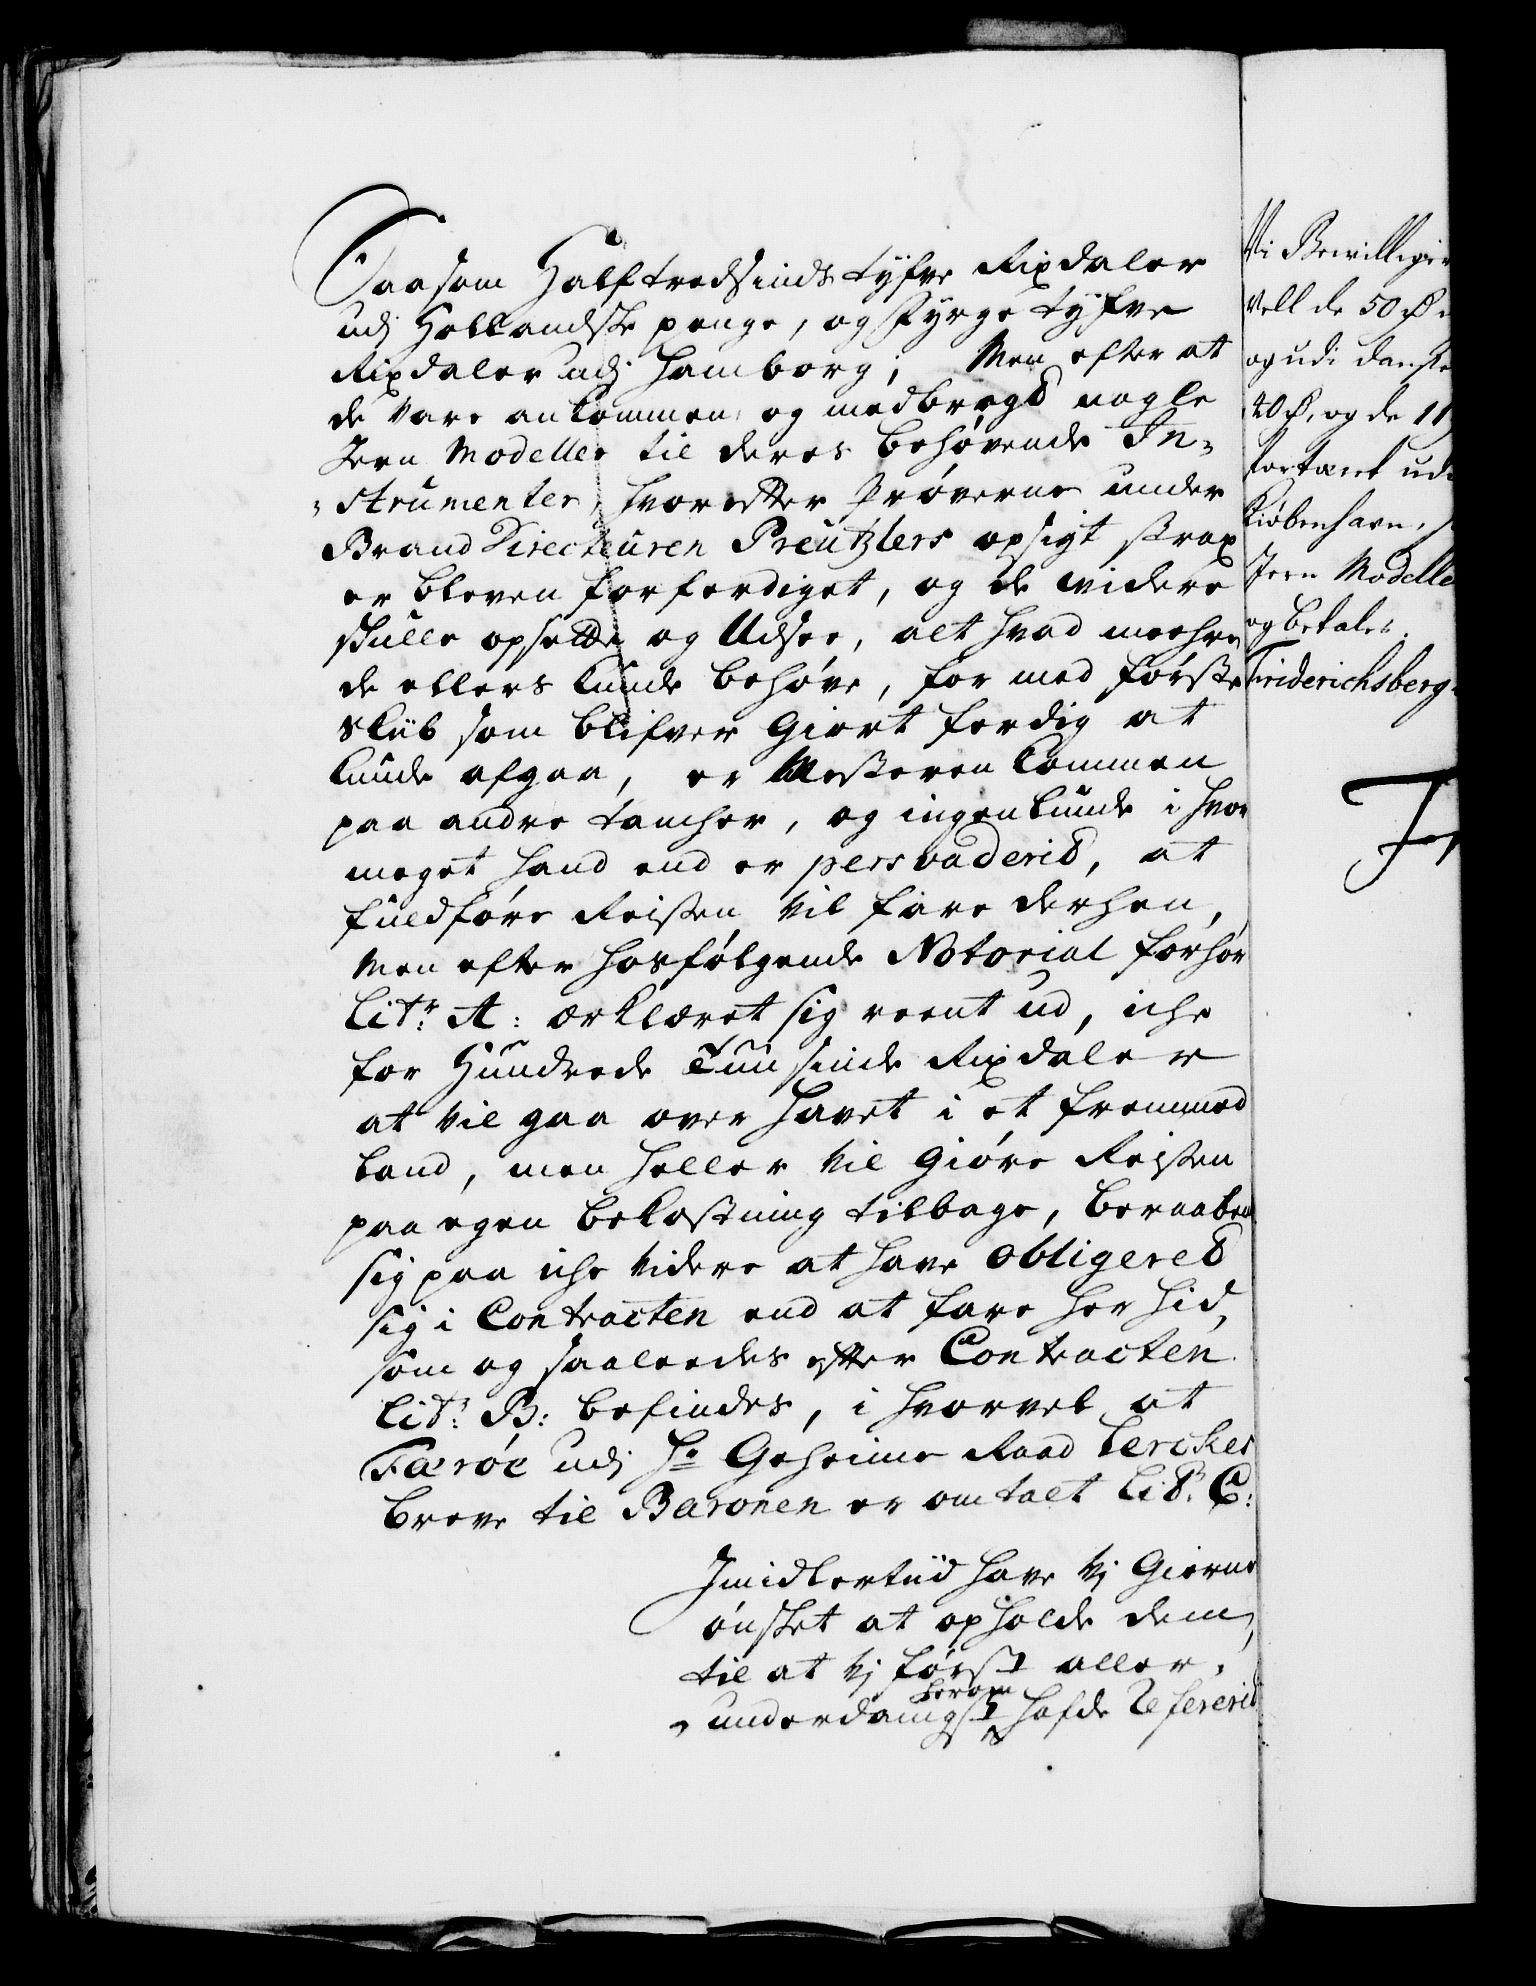 Saasom Halftredsinds tyfve Rixdaler
udj Hollandske penge, og Fyrge tyfve
Rixdaler udj Hamborg; Men efter at
de vare ankommen og medbragt nogle
Jern Modeller til deres behøvende In-
strumenter, hvorefter Prøverne under
Brand Directeuren Preutzlers opsigt strax
er bleven forferdiget, og de widere
skulle opsette og Udsee, alt hvad meehre
de ellers kunde behøve, for med første
Skiib som blifver Giort ferdig at
kunde afgaa, er Mesteren kommen
paa andre tancher, og ingenlunde i hvor
meget hand end er persvaderit, at
fuldføre Reisen vil fare derhen,
Men efter hosfølgende Notorial forhør
Litr: A: ærklæret sig reent ud, iche
for Hundrede Tuusinde Rixdaler
at vil gaa over Havet i et fremmed
Land, men heller vil Giøre Reisen
paa egen bekostning tilbage, beraabende
sig paa iche videre at have obligeret
sig i Contracten end at fare her hid,
som og saaleedes efter Contracten
Litr: B: befindes, i hvorvel at
Færöe udj Hr Geheime Raad Lerckes
breve til Baronen er omtalt Litr: C:
Imidlertiid have Vj Gierne
ønsket at opholde dem,
til at Vj først aller-
underdanigst herom hafde Refererit
Vi Bevillige
vell de 50 Rd
og udi danske
40 Rd, og de 11
fortæret ud
Kiøbenhavn,
Jern Modelle
og betales.
Friderichsberg